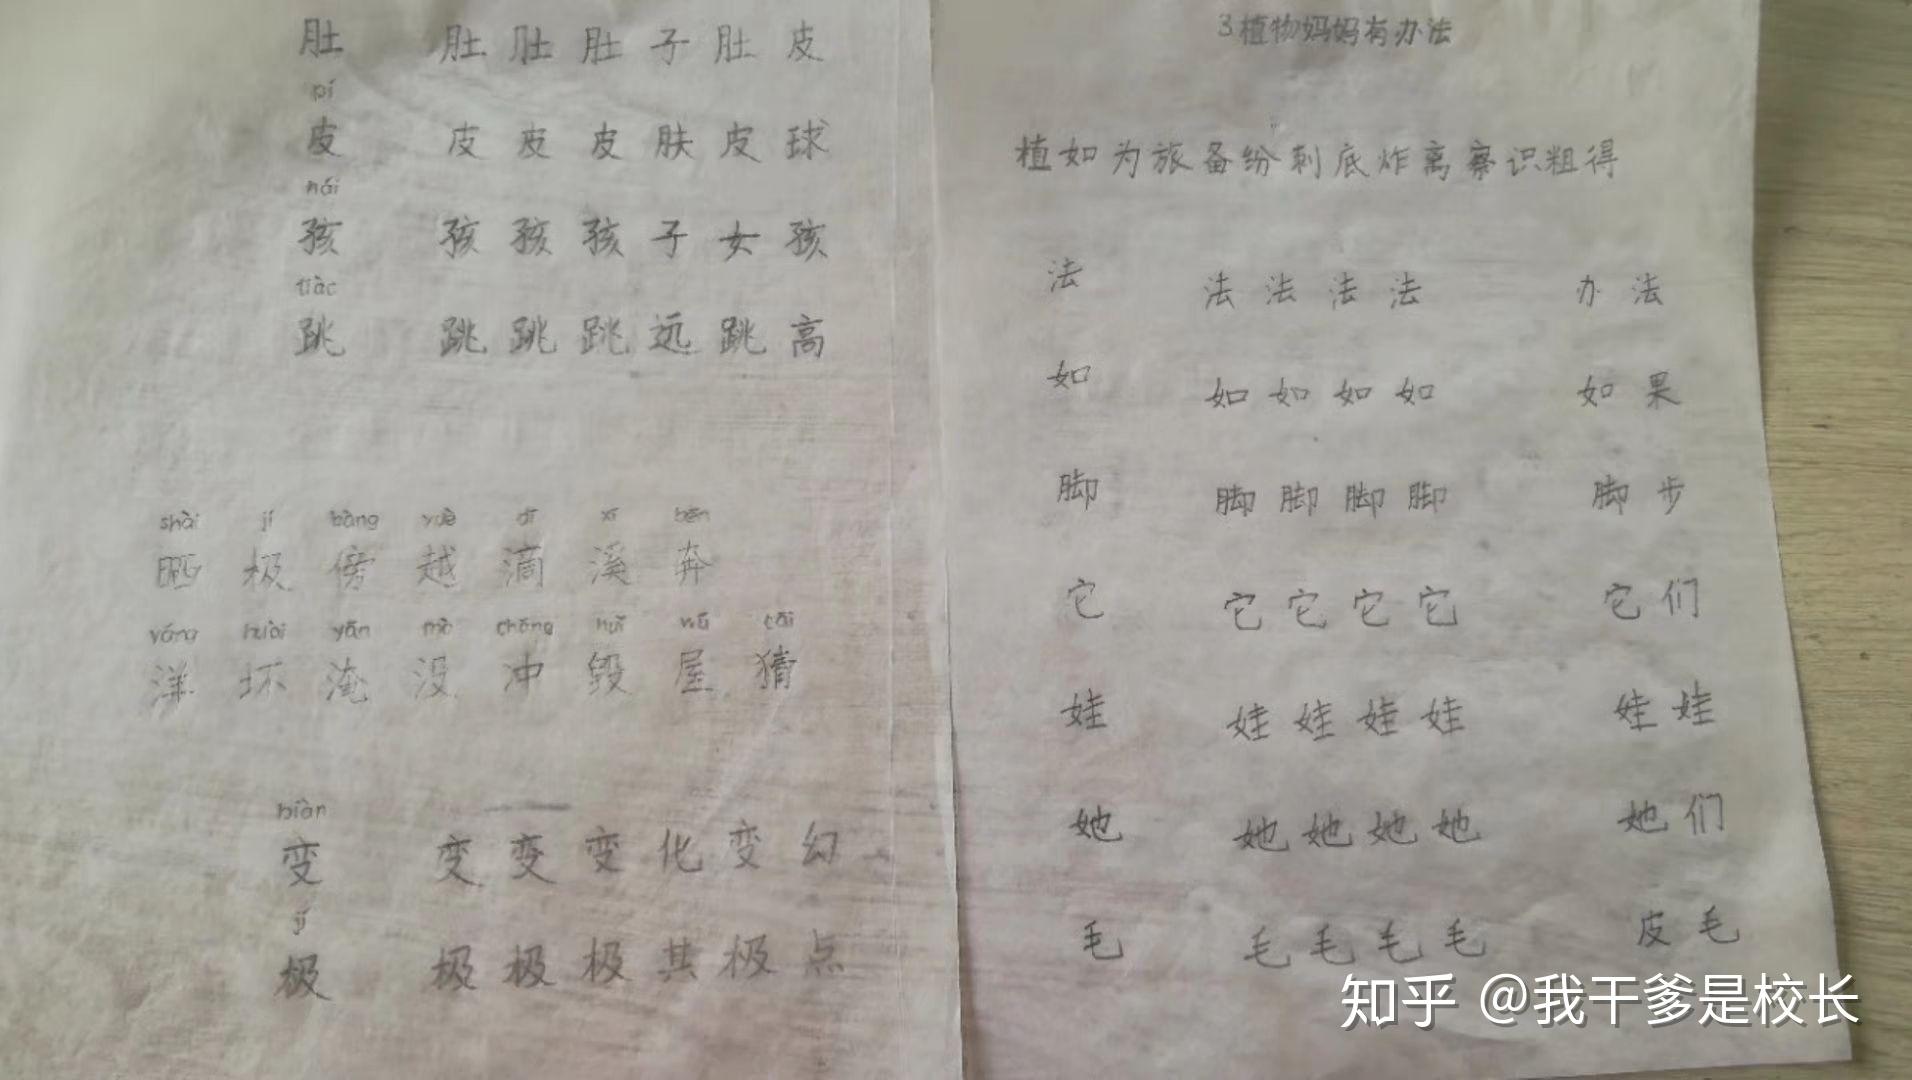 肚 肚 肚 肚 子 肚 皮
pí
皮 皮 皮 皮 肤 皮 球
hái
孩 孩 孩 孩 子 女 孩
tiào
跳 跳 跳 跳 远 跳 高
shài jí bàng yuè dī xī bēn
晒 极 傍 越 滴 溪 奔
yáng huài yān mò chōng huǐ wū cāi
洋 坏 淹 没 冲 毁 屋 猜
biàn
变 变 变 变 化 变 幻
jí
极 极 极 极 其 极 点
3 植物妈妈有办法
植如为旅备纷刺底炸离察识粗得
法 法 法 法 法 办 法
如 如 如 如 如 如 果
脚 脚 脚 脚 脚 脚 步
它 它 它 它 它 它 们
娃 娃 娃 娃 娃 娃 娃
她 她 她 她 她 她 们
毛 毛 毛 毛 毛 皮 毛
知乎 @我干爹是校长